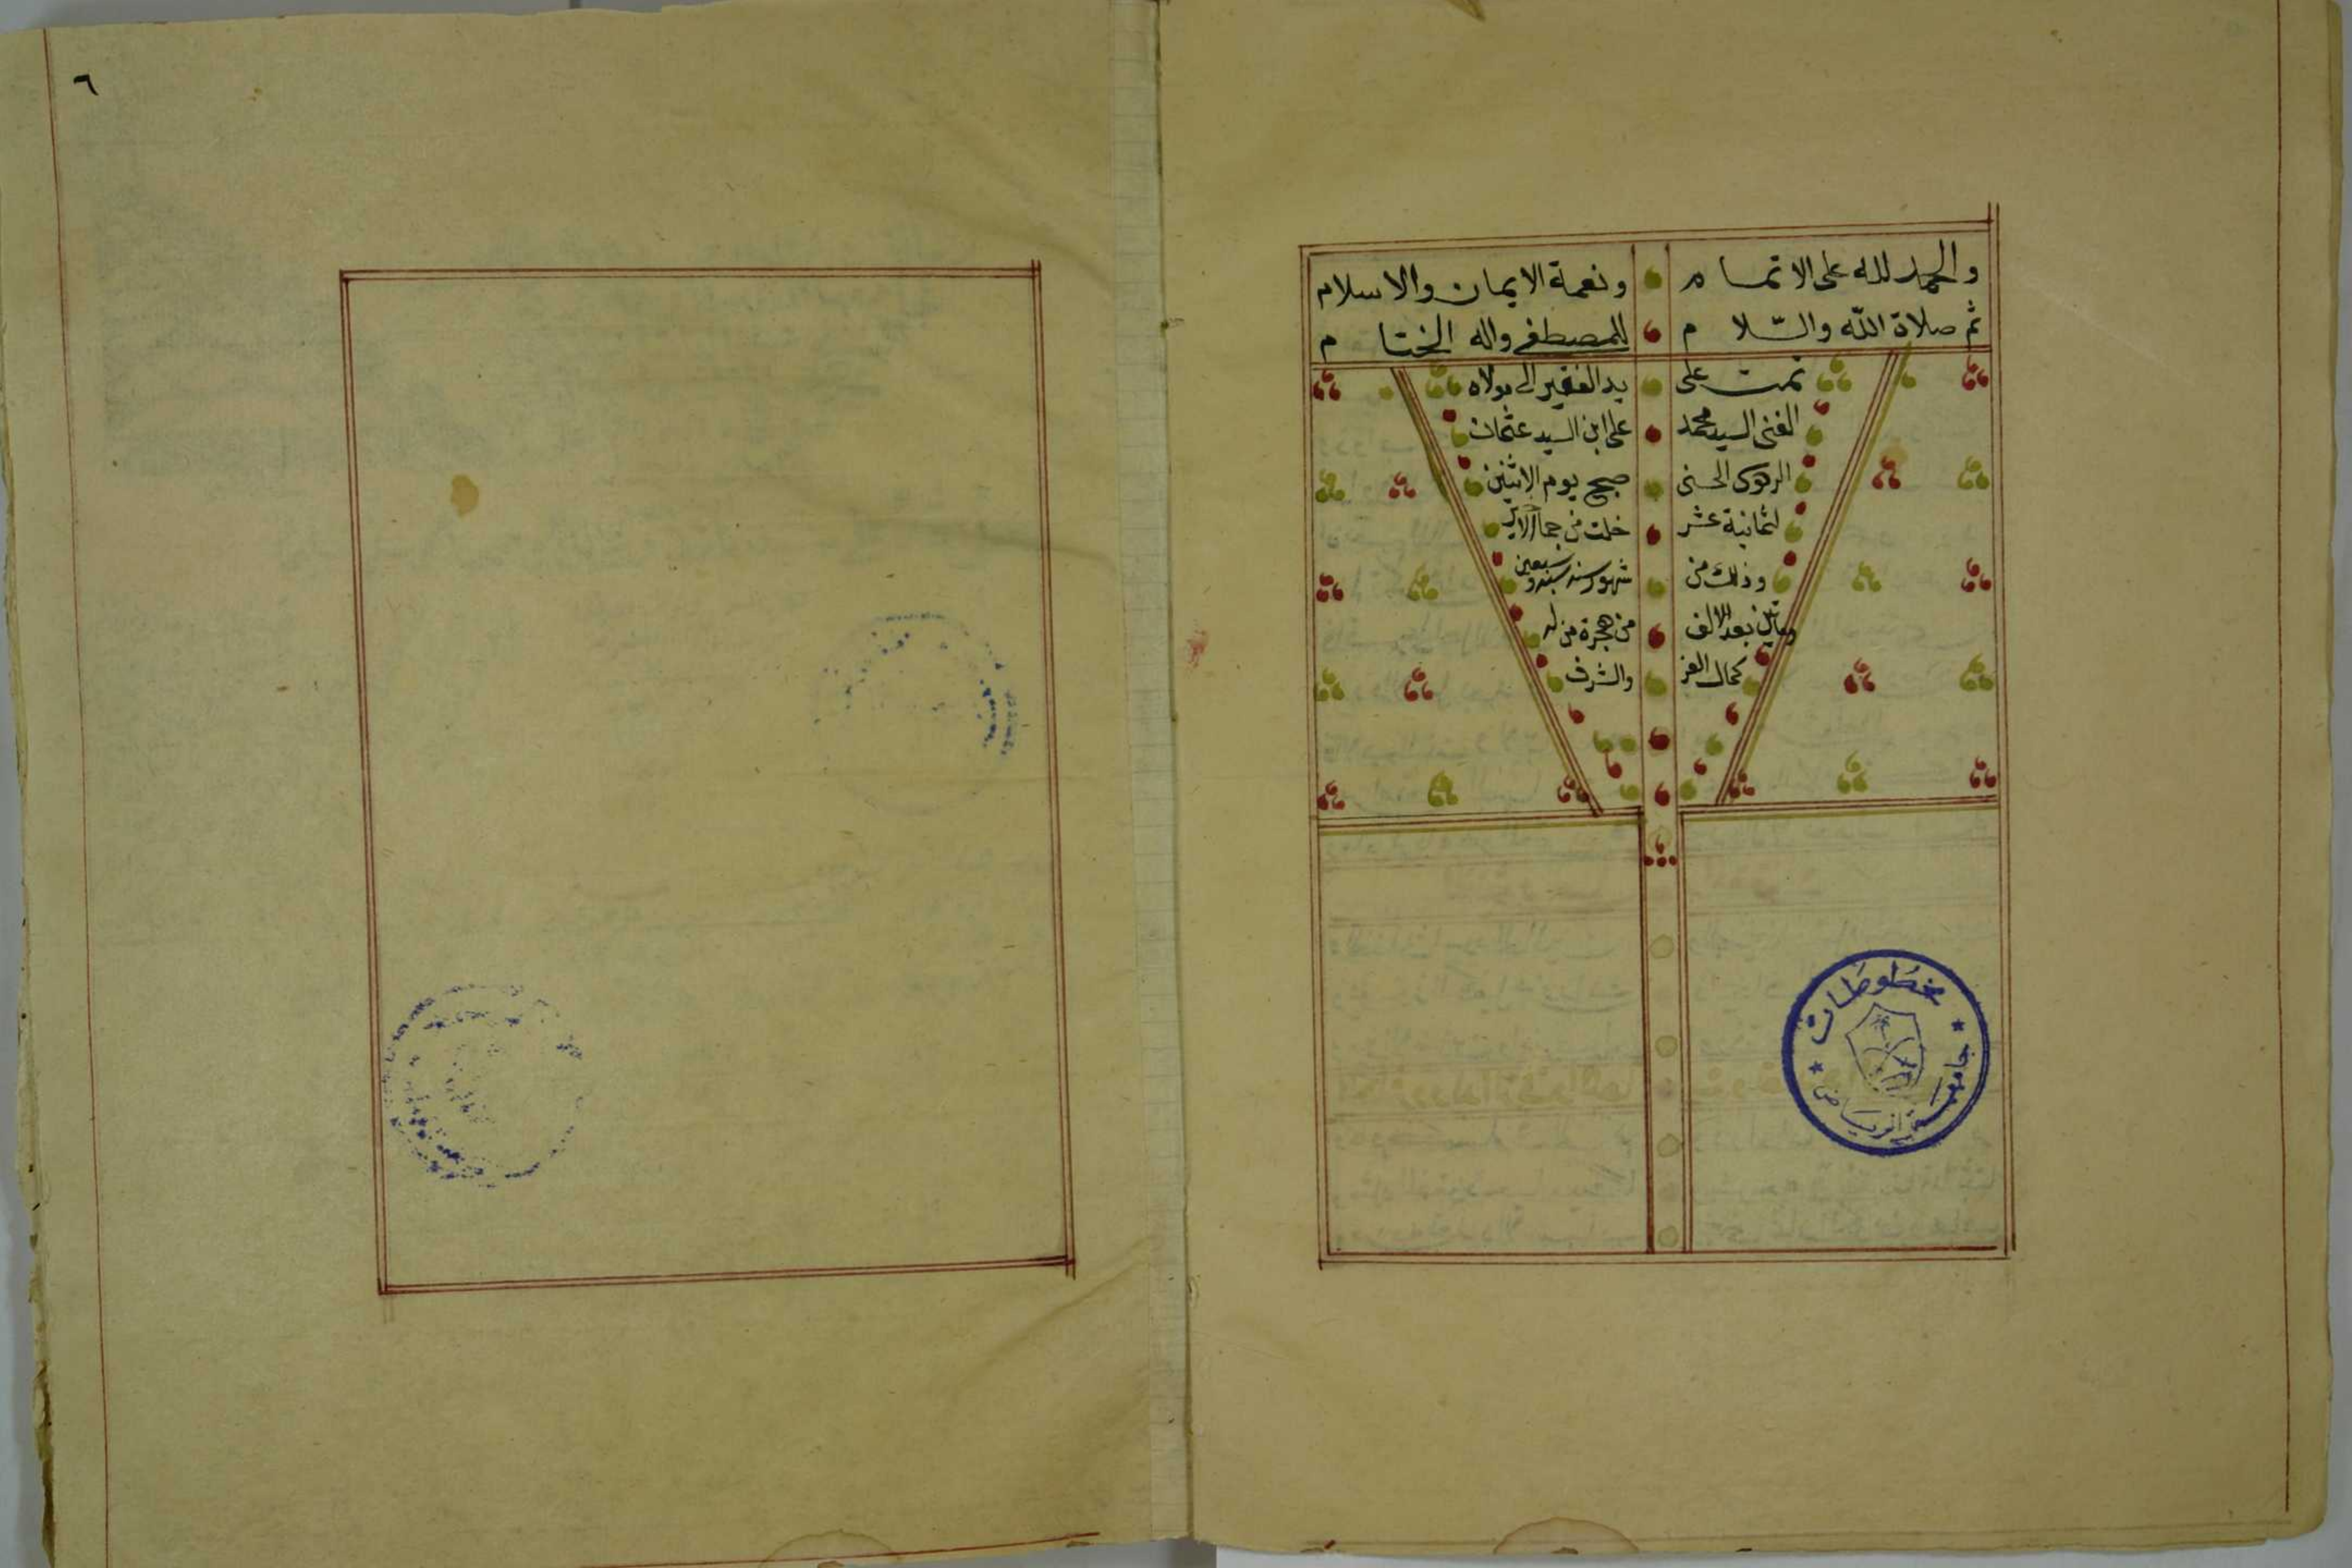 والحمد لله على الاتمام ونعمة الايمان والاسلام
ثم صلاة الله والسّلام للمصطفى واله الختام
تمت على يد الفقير الى مولاه
الغنى السيد محمد على ابن السيد عثمان
الحسنى صبح يوم الاثنين
لثمانية عشر خلت من
وذلك من شهور سنه
ومأتين بعد الالف من هجرة من له
كمال العز والشرف
مخطوطات
جامعة الرياض
٦